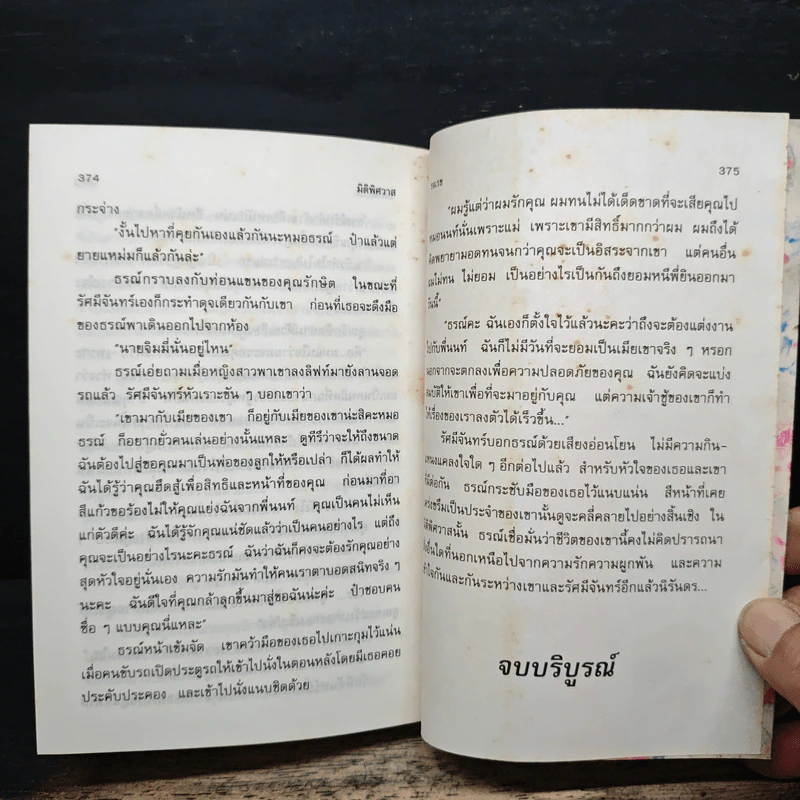 374
มิติพิศวาส
กระจ่าง
"งั้นไปหาที่คุยกันเองแล้วกันนะหมอธรณ์ ป๋าแล้วแต่
ยายแหม่มก็แล้วกันล่ะ"
ธรณ์กราบลงกับท่อนแขนของคุณรักษิต ในขณะที่
รัศมีจันทร์เองก็กระทำดุจเดียวกันกับเขา ก่อนที่เธอจะดึงมือ
ของธรณ์พาเดินออกไปจากห้อง
"นายจิมมี่นั่นอยู่ไหน"
ธรณ์เอ่ยถามเมื่อหญิงสาวพาเขาลงลิฟท์มายังลานจอด
รถแล้ว รัศมีจันทร์หัวเราะขัน ๆ บอกเขาว่า
"เขามากับเมียของเขา ก็อยู่กับเมียของเขาน่ะสิคะหมอ
ธรณ์ ก็อยากยั่วคนเล่นอย่างนั้นแหละ ดูทีรึว่าจะให้ถึงขนาด
ฉันต้องไปสู่ขอคุณมาเป็นพ่อของลูกให้หรือเปล่า ก็ได้ผลทำให้
ฉันได้รู้ว่าคุณฮึดสู้เพื่อสิทธิและหน้าที่ของคุณ ก่อนมาที่อา
สีแก้วขอร้องไม่ให้คุณแย่งฉันจากพี่นนท์ คุณเป็นคนไม่เห็น
แก่ตัวดีค่ะ ฉันได้รู้จักคุณแน่ชัดแล้วว่าเป็นคนอย่างไร แต่ถึง
คุณจะเป็นอย่างไรนะคะธรณ์ ฉันว่าฉันก็คงจะต้องรักคุณอย่าง
สุดหัวใจอยู่นั่นเอง ความรักมันทำให้คนเราตาบอดสนิทจริง ๆ
นะคะ ฉันดีใจที่คุณกล้าลุกขึ้นมาสู่ขอฉันน่ะค่ะ ป๋าชอบคน
ซื่อ ๆ แบบคุณนี่แหละ"
ธรณ์หน้าเข้มจัด เขาคว้ามือของเธอไปเกาะกุมไว้แน่น
เมื่อคนขับรถเปิดประตูรถให้เข้าไปนั่งในตอนหลังโดยมีเธอคอย
ประคับประคอง และเข้าไปนั่งแนบชิดด้วย
375
"ผมรู้แต่ว่าผมรักคุณ ผมทนไม่ได้เด็ดขาดที่จะเสียคุณไป
หมอนนท์นั่นเพราะแม่ เพราะเขามีสิทธิ์มากกว่าผม ผมถึงได้
คิดพยายามอดทนจนกว่าคุณจะเป็นอิสระจากเขา แต่คนอื่น
ผมไม่ทน ไม่ยอม เป็นอย่างไรเป็นกันถึงยอมหนีพี่ยินออกมา
วันนี้"
"ธรณ์คะ ฉันเองก็ตั้งใจไว้แล้วนะคะว่าถึงจะต้องแต่งงาน
ไปกับพี่นนท์ ฉันก็ไม่มีวันที่จะยอมเป็นเมียเขาจริง ๆ หรอก
นอกจากจะตกลงเพื่อความปลอดภัยของคุณ ฉันยังคิดจะแบ่ง
สมบัติให้เขาเพื่อที่จะมาอยู่กับคุณ แต่ความเจ้าชู้ของเขาก็ทำ
ให้เรื่องของเราลงตัวได้เร็วขึ้น..."
รัศมีจันทร์บอกธรณ์ด้วยเสียงอ่อนโยน ไม่มีความกิน-
แหนงแคลงใจใด ๆ อีกต่อไปแล้ว สำหรับหัวใจของเธอและเขา
มีต่อกัน ธรณ์กระชับมือของเธอไว้แนบแน่น สีหน้าที่เคย
เคร่งขรึมเป็นประจำของเขานั้นดูจะคลี่คลายไปอย่างสิ้นเชิง ใน
มิติพิศวาสนั้น ธรณ์เชื่อมั่นว่าชีวิตของเขานี้คงไม่คิดปรารถนา
สิ่งอื่นใดที่นอกเหนือไปจากความรักความผูกพัน และความ
เข้าใจกันและกันระหว่างเขาและรัศมีจันทร์อีกแล้วนิรันดร...
จบบริบูรณ์